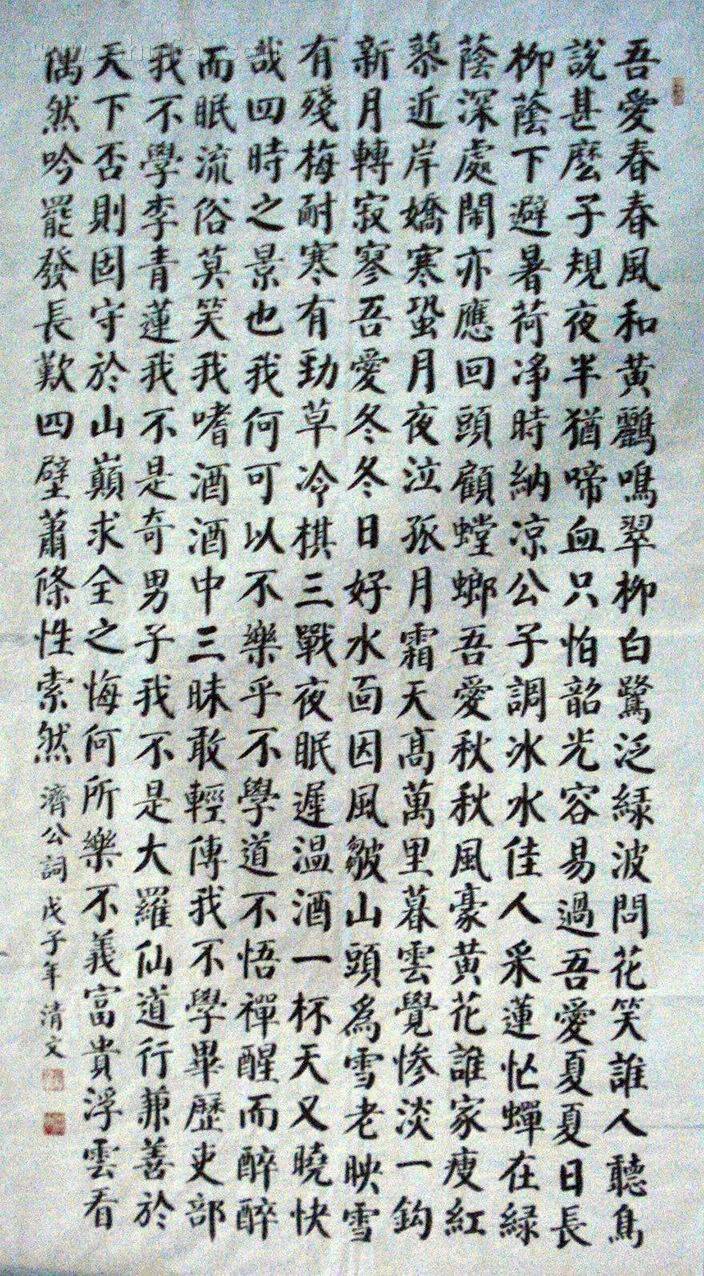 吾愛春春風和黃鸝鳴翠柳白鷺泛綠波問花笑誰人聽鳥
說甚麼子規夜半猶啼血只怕韶光容易過吾愛夏夏日長
柳蔭下避暑荷淨時納凉公子調冰水佳人采蓮忙蟬在綠
蔭深處鬧亦應回頭顧螳螂吾愛秋秋風豪黃花誰家瘦紅
蓼近岸嬌寒蛩月夜泣孤月霜天高萬里暮雲覺慘淡一鈎
新月轉寂寥吾愛冬冬日好水面因風皺山頭爲雪老映雪
有殘梅耐寒有勁草冷棋三戰夜眠遲温酒一杯天又曉快
哉四時之景也我何可以不樂乎不學道不悟禪醒而醉醉
而眠流俗莫笑我嗜酒酒中三昧敢輕傳我不學畢歷吏部
我不學李青蓮我不是奇男子我不是大羅仙道行兼善於
天下否則固守於山巔求全之悔何所樂不義富貴浮雲看
偶然吟罷發長歎四壁蕭條性索然 濟公詞戊子年清文